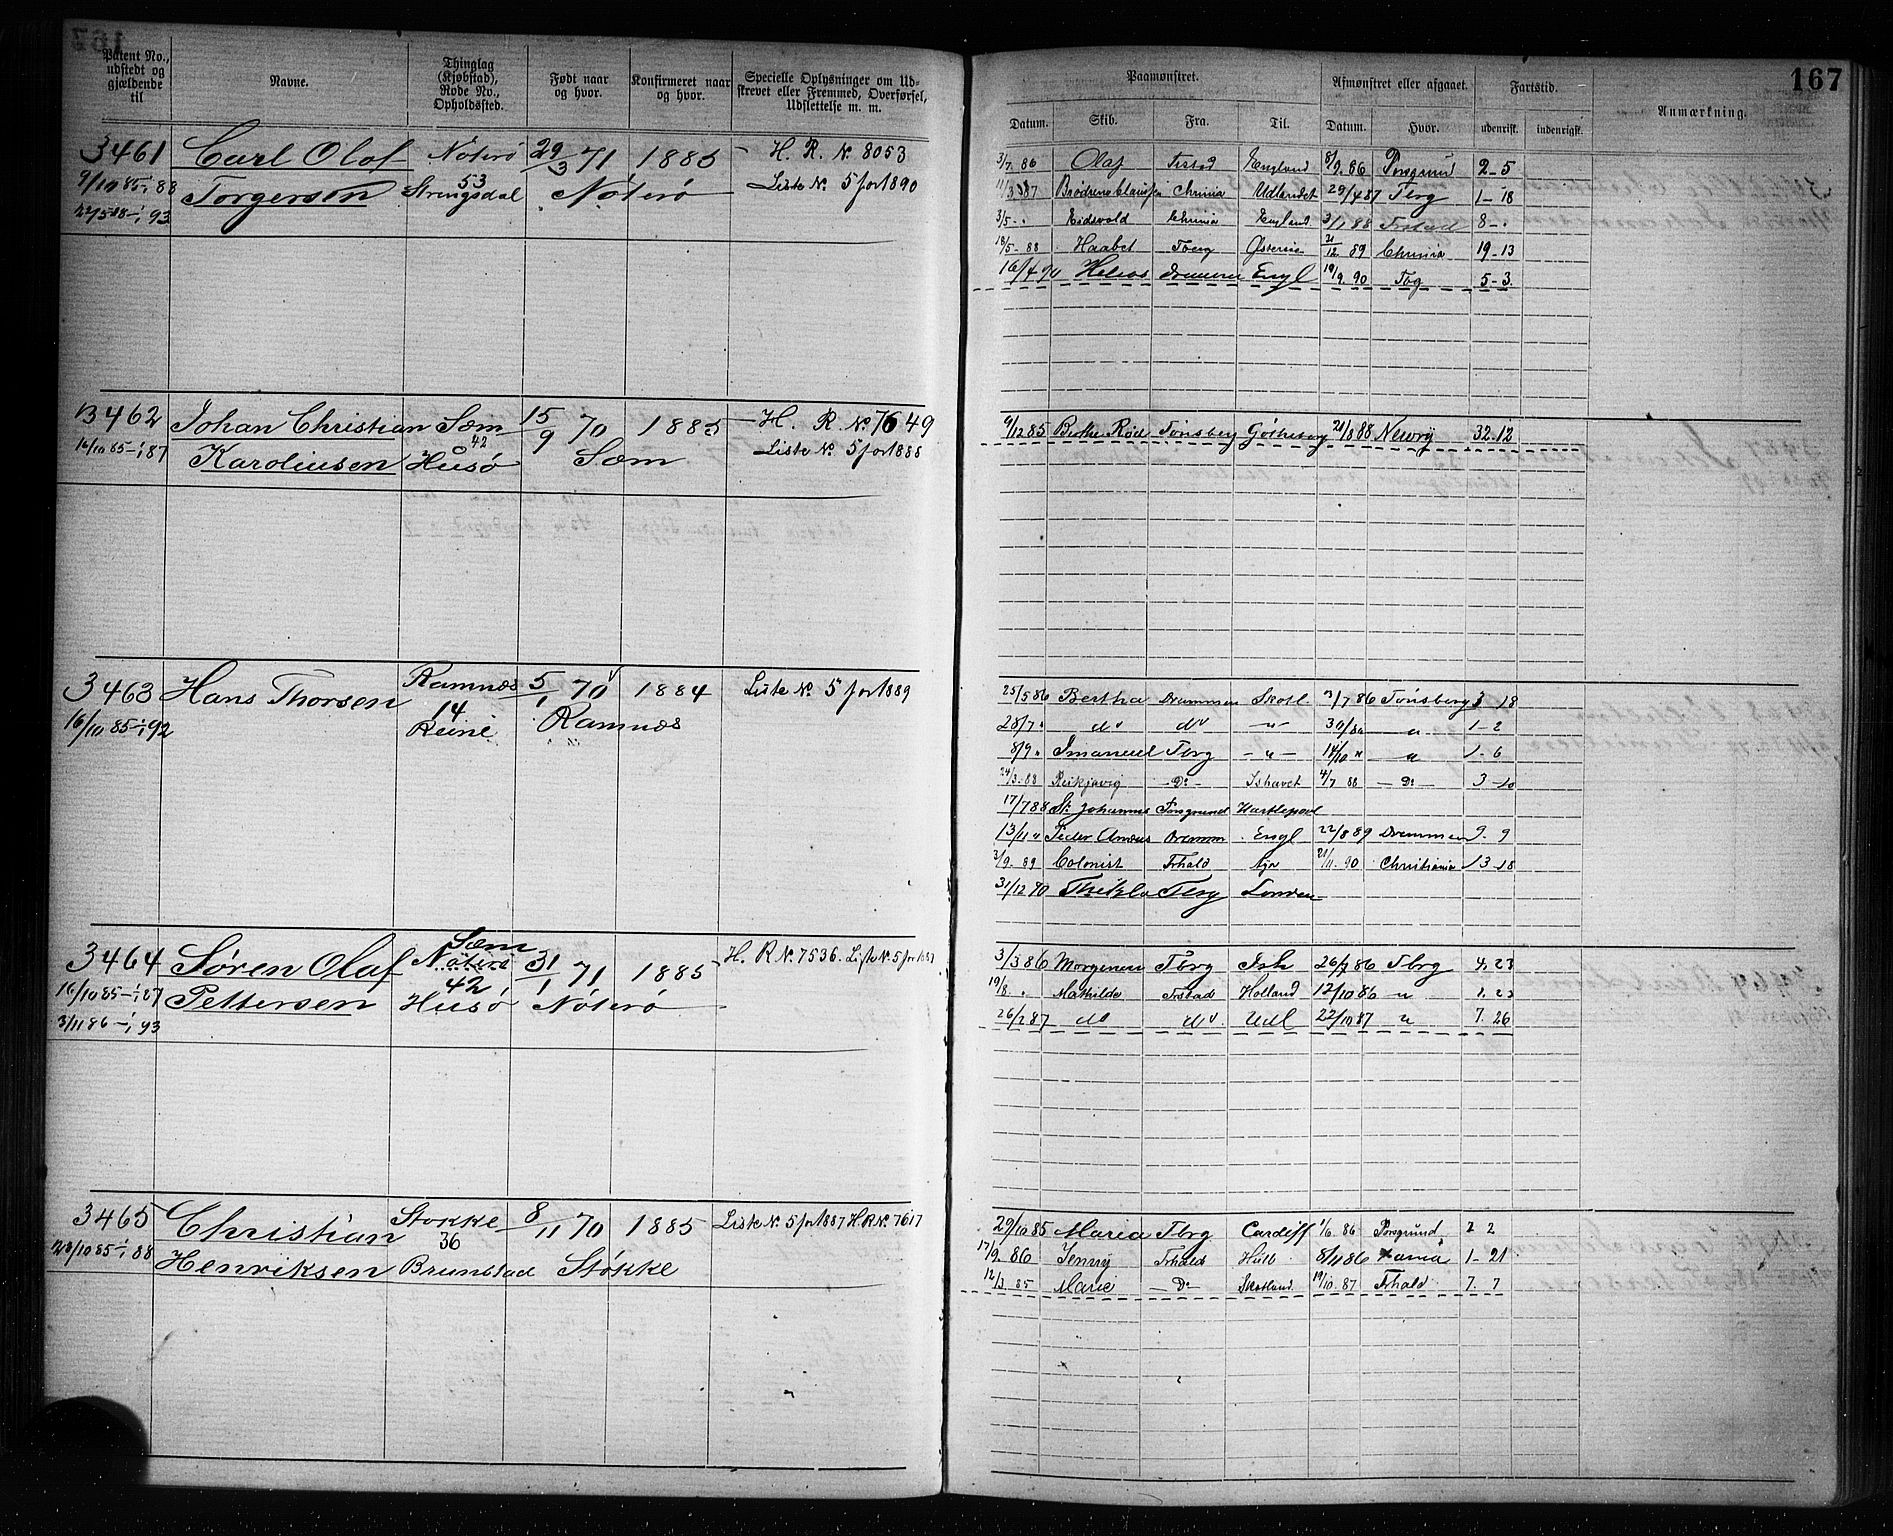 167
Patent No., udstedt og gjældende til
Navne.
Thinglag (Kjøbstad), Rode No., Opholdssted.
Født naar og hvor.
Konfirmeret naar og hvor.
Specielle Oplysninger om Udskrevet eller Fremmed, Overførsel, Udslettelse m. m.
Paamønstret.
Afmønstret eller afgaaet.
Fartstid.
Anmærkning.
Datum. Skib. Fra. Til. Datum. Hvor. udenrigsk. indenrigsk.
3461 Carl Olaf Nøterö 29/3 71 1885 H. R. No. 8053
9/10 85-1/1 88 Torgersen 53 Strengsdal Nøterö Liste No. 5 for 1890
93
3/7. 86 Olaf England 8/9. 86 Porsgrund 2-5
87 Chrnia Udlandet 29/4 87 Tbrg 1-18
3/5 - . Eidsvold Chrnia England 3/1 88 8-.
18/5. 88 Haabet Tbrg 12 89 Chrnia 19-13
16/4 90 Helios Drammen Engl 19/9. 90 Tbg 5-3.
3462 Johan Christian Sæm 15/9 70 1885 H. R. No. 7649
16/10 85-1/1 87 Karoliusen 42 Husö Sæm Liste No. 5 for 1888
9/12 85 Tönsberg 88 32.12
3463 Hans Thorsen Ramnæs 5/1 70 1884 Liste No. 5 for 1889
16/10 85-1/1 92 14 Reine Ramnæs
25/5 86 Bertha Drammen Skotl. 3/7 86 Tönsberg 3 18
28/7 . do do - " - 30/8 " 1-2
8/9 . Imanuel Tbrg - " - 14/10 " " 1-6
24/3. 88 Reikjavig - Do - Ishavet 4/7 88 - Do - 3-10
17/7 88 St. Johannes Porsgrund Hartlepool
13/11 " Engl 22/8 89 Drammen 9-9
2/9. 89 Colonist Frhald 21/11. 90 Christiania 13-18
31/12 90 Thekla Tbrg London
3464 Søren Olaf Sæm Nøterö 31/1 71 1885 H. R No. 7536. Liste No. 5 for 1887
16/10 85-1/1 87 Pettersen 42 Husö Nøterö
3/11 86-1/1 93
3/3 86 Morgenen Tbrg Ish 86 Tbrg 4. 23
19/8. . Mathilde Frstad Holland 12/10 86 " 1. 23
26/2 87 do do Udl 22/10 87 " 7. 26
3465 Christian Stokke 8/11 70 1885 Liste No. 5 for 1887 H.R No. 7617
28/10 85-1/1 88 Henriksen 36 Brunstad Stökke
29/10 85 Maria Tbrg Cardiff 1/6 86 Porsgrund 2 2
17/9. 86 Jenny Frhald 8/11 86 Xania 1-21
12/3. 85 Marie - Do Skotland 19/10. 87 Frhald 7. 7